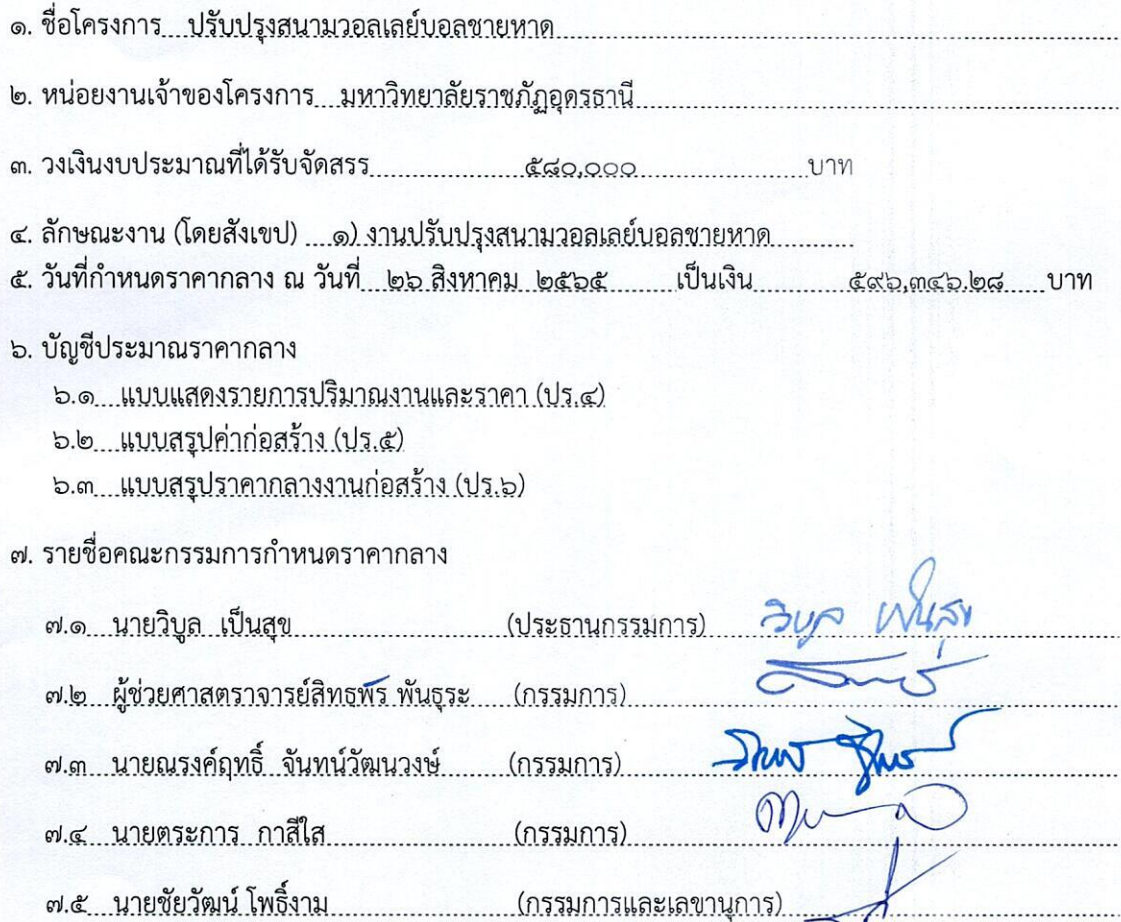 ๑. ชื่อโครงการ ปรับปรุงสนามวอลเลย์บอลชายหาด
๒. หน่อยงานเจ้าของโครงการ มหาวิทยาลัยราชภัฏอุดรธานี
๓. วงเงินงบประมาณที่ได้รับจัดสรร ๕๘๐,๐๐๐ บาท
๔. ลักษณะงาน (โดยสังเขป) ๑) งานปรับปรุงสนามวอลเลย์บอลชายหาด
๕. วันที่กำหนดราคากลาง ณ วันที่ ๒๖ สิงหาคม ๒๕๖๕ เป็นเงิน ๕๙๖,๓๔๖.๒๘ บาท
๖. บัญชีประมาณราคากลาง
๖.๑ แบบแสดงรายการปริมาณงานและราคา (ปร.๔)
๖.๒ แบบสรุปค่าก่อสร้าง (ปร.๕)
๖.๓ แบบสรุปราคากลางงานก่อสร้าง (ปร.๖)
๗. รายชื่อคณะกรรมการกำหนดราคากลาง
๗.๑ นายวิบูล เป็นสุข (ประธานกรรมการ) วิบูล เป็นสุข
๗.๒ ผู้ช่วยศาสตราจารย์สิทธพีร พันธุระ (กรรมการ)
๗.๓ นายณรงค์ฤทธิ์ จันทน์วัฒนวงษ์ (กรรมการ)
๗.๔ นายตระการ กาสีใส (กรรมการ)
๗.๕ นายชัยวัฒน์ โพธิ์งาม (กรรมการและเลขานุการ)